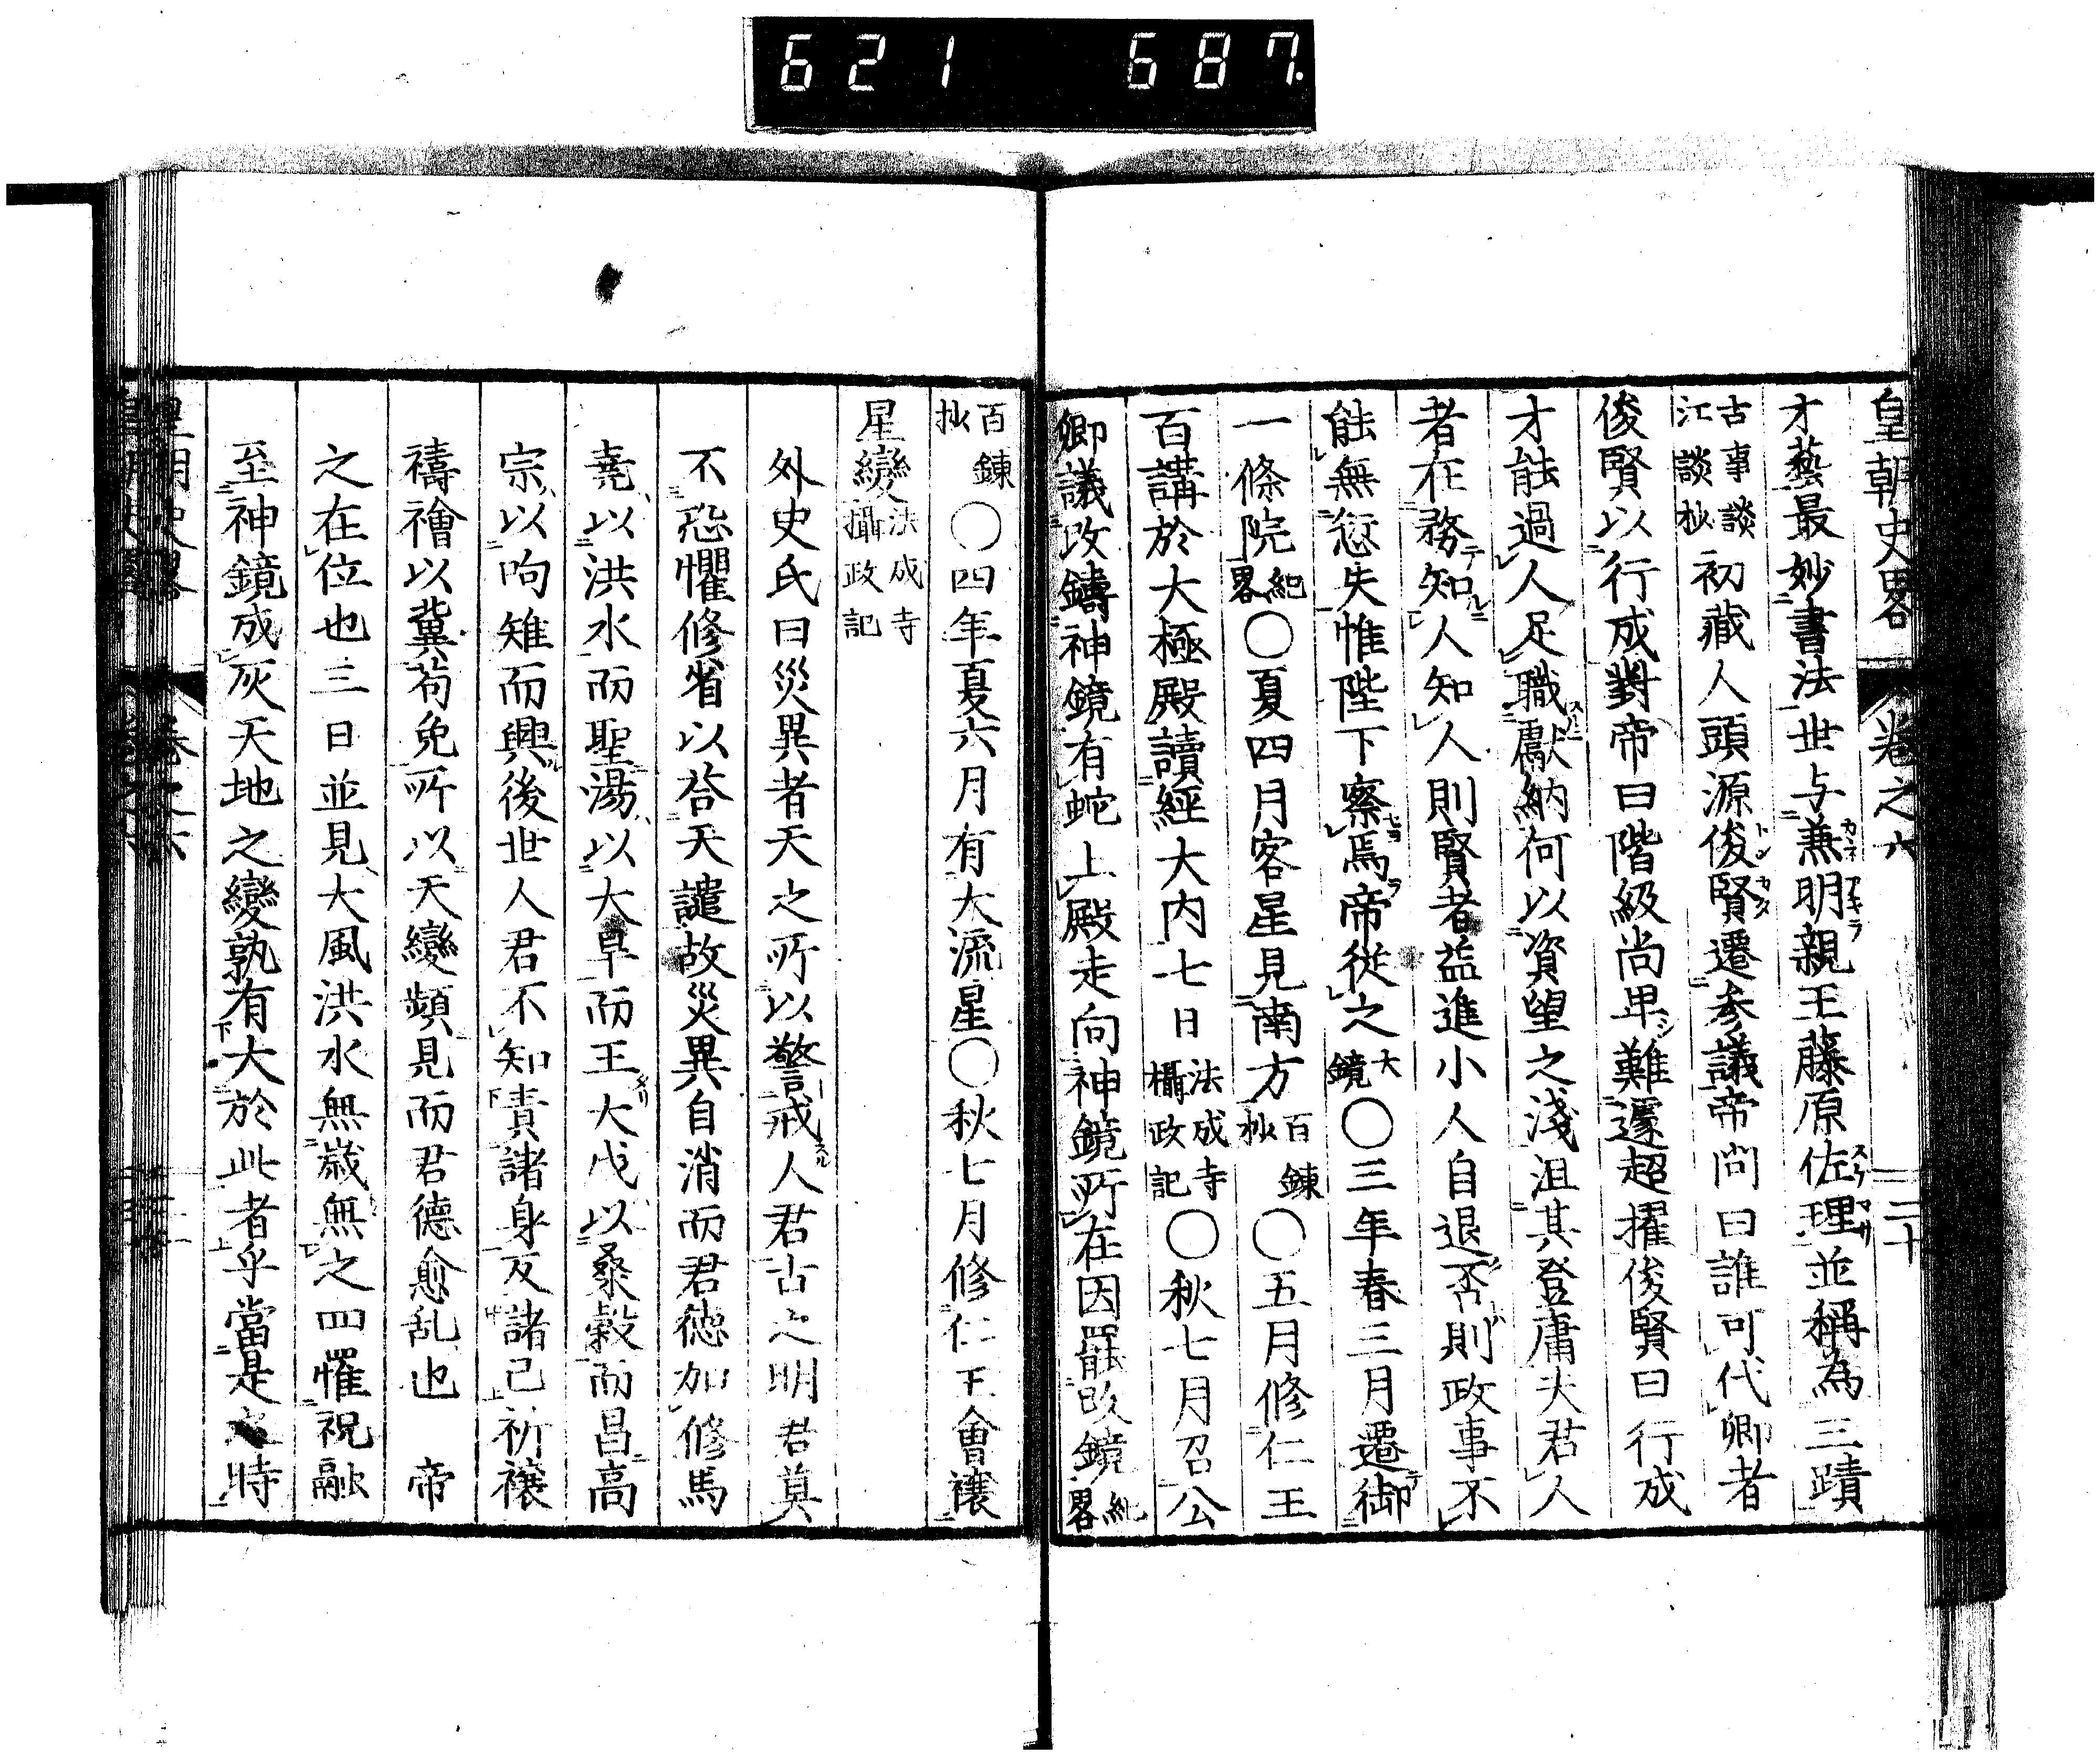 621 687.
皇朝史畧 卷之六 二十
才藝最妙書法世与兼明親王藤原佐理並稱為三蹟
古事談江談抄初藏人頭源俊賢遷参議帝問曰誰可代卿者
俊賢以行成對帝曰階級尚卑難遽超擢俊賢曰行成
才能過人足職獻納何以資望之淺沮其登庸夫君人
者在務知人知人則賢者益進小人自退否則政事不
能無愆失惟陛下察焉帝從之大鏡〇三年春三月遷御
一條院紀畧〇夏四月客星見南方百鍊抄〇五月修仁王
百講於大極殿讀經大內七日法成寺攝政記〇秋七月召公
卿議改鑄神鏡有蛇上殿走向神鏡所在因罷改鏡紀畧
百鍊抄〇四年夏六月有大流星〇秋七月修仁王會禳
星變法成寺攝政記
外史氏曰災異者天之所以警戒人君古之明君莫
不恐懼修省以荅天譴故災異自消而君德加修焉
堯以洪水而聖湯以大旱而王大戊以桑穀而昌高
宗以呴雉而興後世人君不知責諸身反諸己祈禳
禱禬以冀苟免所以天變頻見而君德愈乱也 帝
之在位也三日並見大風洪水無歲無之四罹祝融
至神鏡成灰天地之變孰有大於此者乎當是之時